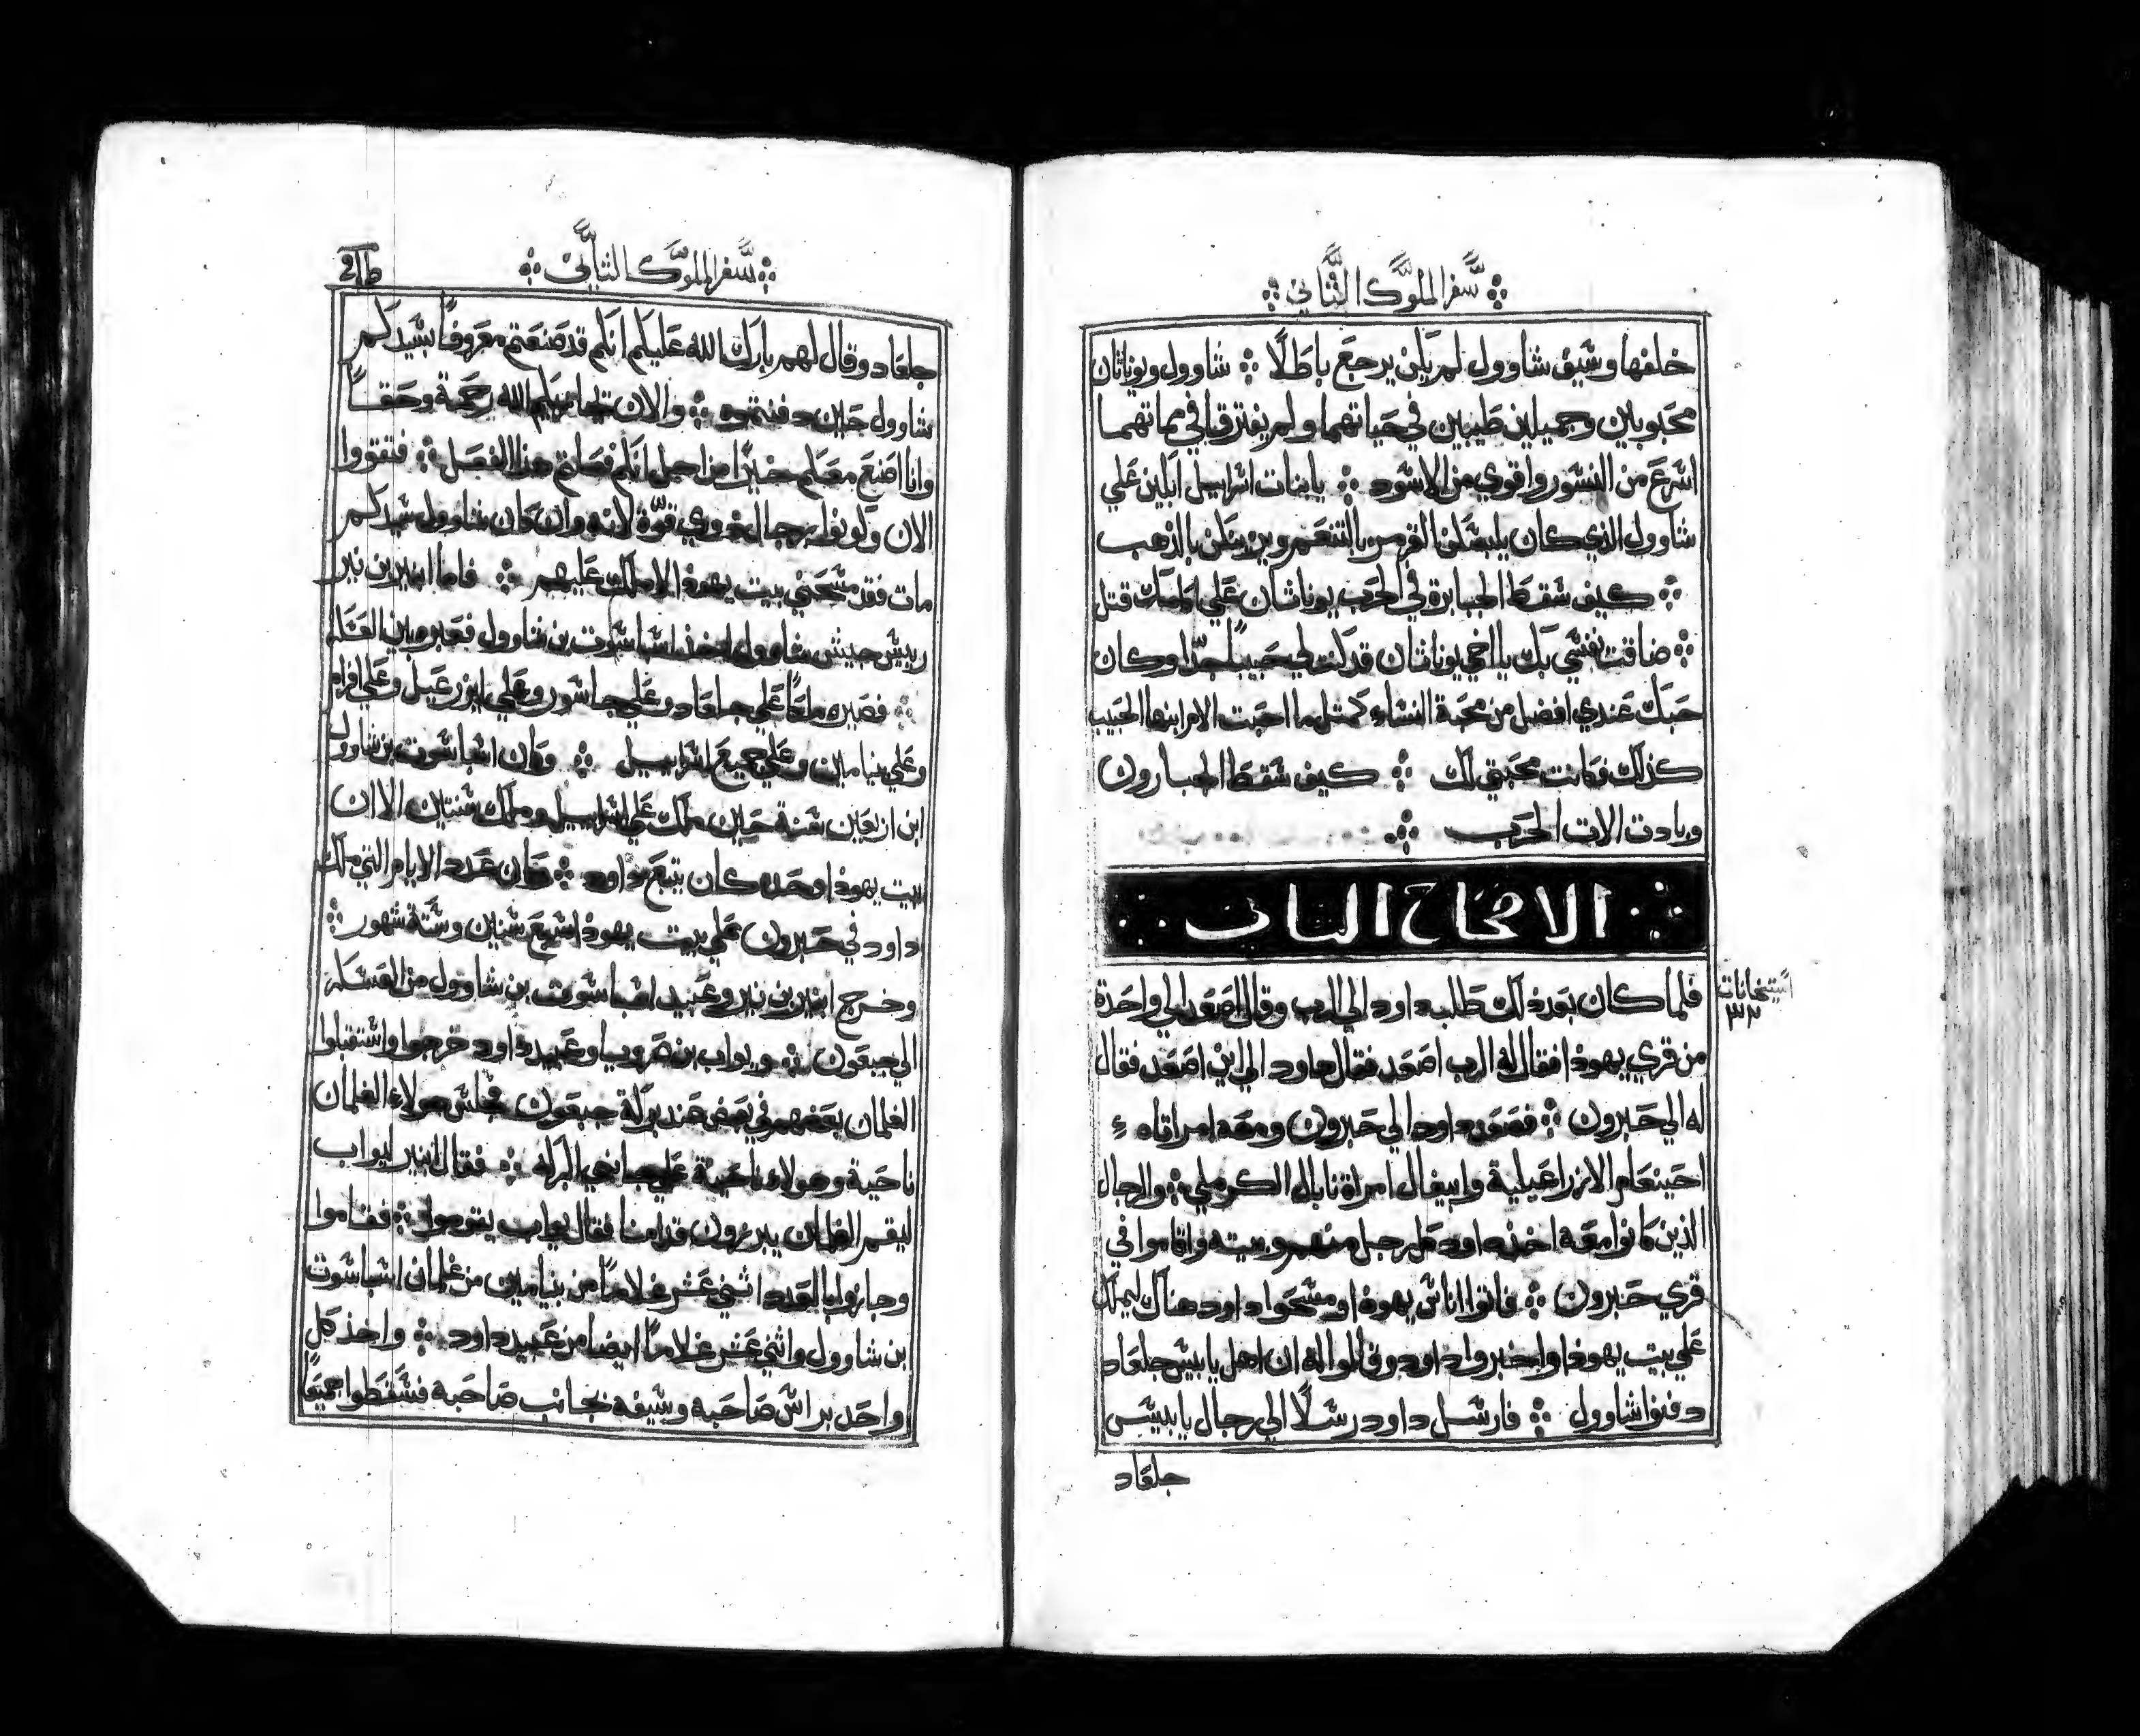 سفر الملوك الثاني
خلفها وسيف شاوول لم يكن يرجع باطلًا ۞ شاوول ويوناثان
محبوبين وجميلين طيبين في حياتهما ولم يفترقا في مماتهما
اسرع من النسور واقوي من الاسود ۞ يا بنات اسراييل ابكين علي
شاوول الذي كان يلبسكن القرمس بالتنعم ويزينكن بالذهب
۞ كيف سقط الجبابرة في الحرب يوناثان علي قتل
۞ ضاقت نفسي بك يا اخي يوناثان قد كنت لي حبيبًا جدًا وكان
حبك عندي افضل من محبة النساء كمثل ما احبت الام ابنها الحبيب
كذلك فكانت محبتي لك ۞ كيف سقط الجبارون
وبادت الات الحرب ۞
الاصحاح الثاني
فلما كان بعد ذلك طلب داود الي الرب وقال اصعد الي واحدة
من قري يهوذا فقال له الرب اصعد فقال داود الي اين اصعد فقال
له الي حبرون ۞ فصعد داود الي حبرون ومعه امراتاه
احينعام الازراعيلية وابيغال امراة نابال الكرملي ۞ والرجال
الذين كانوا معه اخذ داود كل رجل منهم وبيته واقاموا في
قري حبرون ۞ فاتوا اناس يهوذا ومسحوا داود هناك ليملك
علي بيت يهوذا واخبروا داود وقالوا له ان اهل يابيس جلعاد
دفنوا شاوول ۞ فارسل داود رسلًا الي رجال يابيس
جلعاد
استخانات
٣٢
سفر الملوك الثاني
جلعاد وقال لهم بارك الله عليكم انكم قد صنعتم معروفًا بسيدكم
شاوول حين دفنتموه ۞ والان يجازيكم الله رحمة وحقًا
وانا اصنع معكم خيرًا من اجل انكم فعلتم هذا الفعل ۞ فتقووا
الان وكونوا رجال ذوي قوة لانه وان كان شاوول سيدكم
مات فقد مسحني بيت يهوذا لاملك عليهم ۞ فاما ابنير بن نير
رييس جيش شاوول اخذ اشباسوت بن شاوول فعبره بين العسكر
۞ فصيره ملكًا علي جلعاد وعلي جاسور وعلي ايزرعيل وعلي افرام
وعلي بنيامين وعلي جميع اسراييل ۞ وكان اشباسوت بن شاوول
ابن اربعين سنة حين ملك علي اسراييل وملك سنتين الا ان
بيت يهوذا وحده كان يتبع داود ۞ وكان عدد الايام التي ملك
داود في حبرون علي بيت يهوذا سبع سنين وستة شهور ۞
وخرج ابنير بن نير وعبيد اشباسوت بن شاوول من العسكر
الي جبعون ۞ ويواب بن صرويا وعبيد داود خرجوا واستقبلوا
الغلمان بعضهم في بعض عند بركة جبعون فجلس هولاء الغلمان
ناحية وهولاء ناحية علي جانبي البركة ۞ فقال ابنير ليواب
ليقم الغلمان يبرزون قدامنا فقال يواب يقوموا ۞ فقاموا
وجازوا بالعدد اثني عشر غلامًا من بنيامين من غلمان اشباسوت
بن شاوول واثني عشر غلامًا ايضا من عبيد داود ۞ واخذ كل
واحد براس صاحبه وسيفه بجانب صاحبه فسقطوا جميعًا